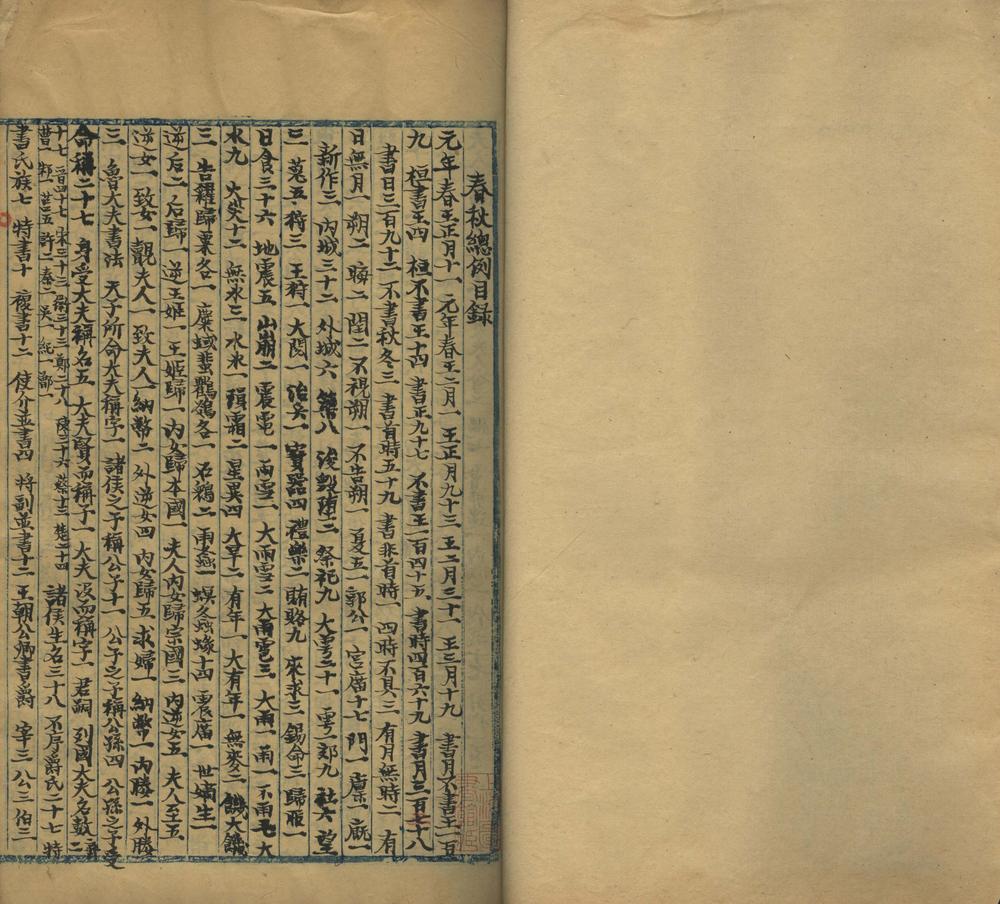 春秋總例目錄
元年春王正月十一 元年春王二月一 王正月九十三 王二月二十一 王三月十九 書月不書王一百
九 桓書王四 桓不書王十四 書正九十七 不書王一百四十五 書時四百六十九 書月三百七十八
書日三百九十二 不書秋冬三 書首時五十九 書非首時一 四時不具三 有月無時二 有
日無月一 朔二 晦二 閏二 不視朔一 不告朔一 夏五一 郭公一 宮廟十七 門一 廩一 廄一
新作三 內城三十二 外城六 築八 浚毀墮三 祭祀九 大雩二十一 雩一 郊九 社六 望
三 蒐五 狩三 王狩一 大閱一 治兵一 寶器四 禮樂二 賄賂九 來求三 錫命三 歸脤一
日食三十六 地震五 山崩二 震電一 雨雪一 大雨雪二 大雨雹三 大雨一 雨一 不雨七 大
水九 火災十二 無氷三 水氷一 隕霜二 星異四 大旱二 有年一 大有年一 無麥二 饑大饑
三 告糴歸粟各一 麋蜮蜚鸜鵒各一 石鶂二 雨螽一 螟冬螽蝝十四 震廟一 世嫡生一
逆后二 后歸一 逆王姬一 王姬歸一 內女歸本國一 夫人內女歸宗國三 內逆女五 夫人至五
逆女一 致女一 覿夫人一 致夫人一 納幣二 外逆女四 內女歸五 求婦一 納幣一 內媵一 外媵
三 魯大夫書法 天子所命大夫稱字一 諸侯之子稱公子十一 公子之子稱公孫四 公孫之子受
命稱二十七 身受大夫稱名五 大夫賢而稱子一 大夫沒而稱字一 君嗣 列國大夫名數
十七 晉四十七 宋三十三 衛三十三 鄭二十八 陳二十六 蔡十三 楚二十四
曹 邾一 莒五 許二 秦二 吳一 紀一 鄫一 諸侯生名三十八 不序爵氏二十七 特
書氏族七 特書十 複書十二 使介並書四 將副並書十二 王朝公卿書爵 宰三 公三 伯二